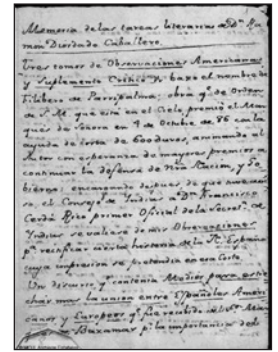 Memoria de las tareas literarias de Dn. Ra-
mon Diosdado Caballero.
Tres tomos de Observaciones Americanas
y Suplemento Critico &c. baxo el nombre de
Filibero de Parripalma: obra qe. de Orden
de S. M. que está en el Cielo premió el Mar-
qués de Sonora en 4 de Octubre de 86 con la
ayuda de costa de 600 duros, animando al
Autor con esperanza de mayores premios a
continuar la defensa de Nra. Nacion, y Go-
bierno: encargando despues de que
el Consejo de Indias a Dn. Francisco
Cerdá Rico primer Oficial de la Secret. de
Indias se valiese de mis Observaciones
pa. rectificar cierta historia de la Rl. Española
cuya impresion se pretendia en esa Corte.
Un discurso qe. contenia Medios para estre-
char mas la union entre Españoles Ameri-
canos y Europeos qe. fue recibido del Sr. Mar.
Baxamar pr. la importancia del